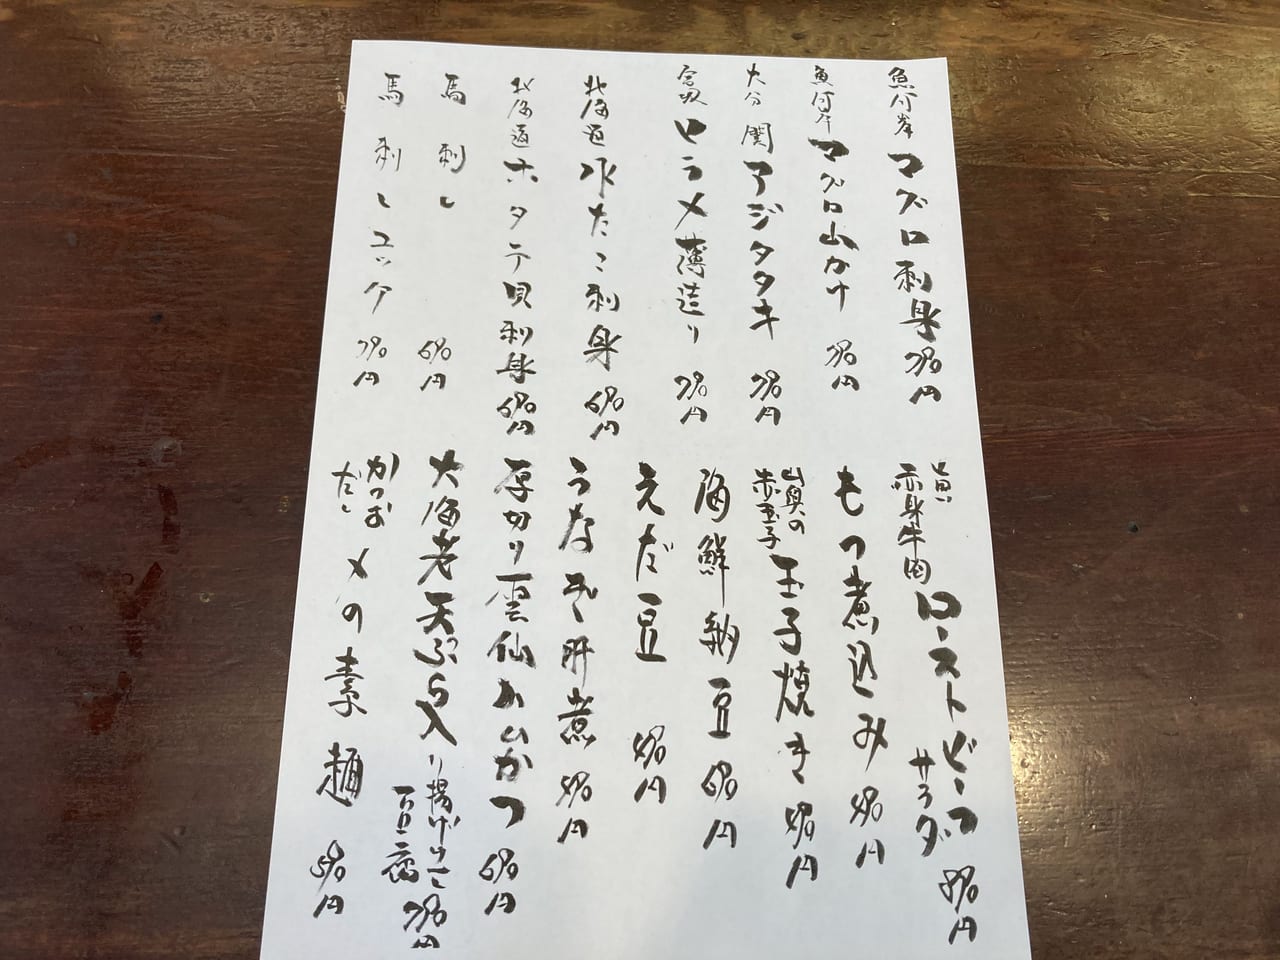 魚河岸 マグロ刺身 790円
魚河岸 マグロ山かけ 790円
大分 関アジタタキ 790円
ヒラメ薄造り 790円
北海道 水たこ刺身 690円
北海道 ホタテ貝刺身 690円
馬刺し 690円
馬刺しユッケ 790円
赤身牛肉 ローストビーフ サラダ 890円
もつ煮込み
山奥の赤玉子 玉子焼き
海鮮納豆 690円
えだ豆
うなぎ肝煮
厚切り雲仙ハムかつ 690円
大海老天ぷら入り揚げだし豆腐 790円
かつおだし 〆の素麺 590円